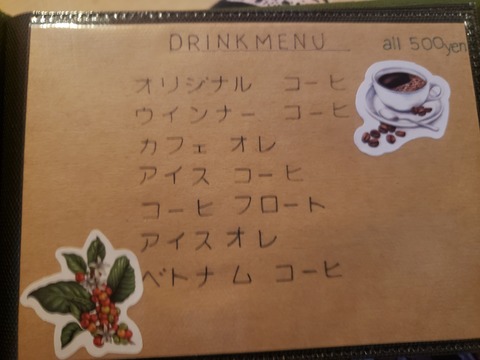 DRINKMENU
all 500yen
オリジナル コーヒ
ウインナー コーヒ
カフェ オレ
アイス コーヒ
コーヒ フロート
アイスオレ
ベトナム コーヒ